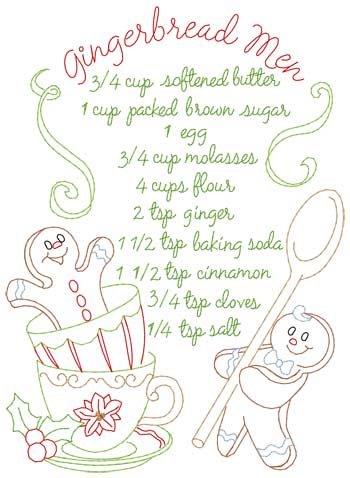 Gingerbread Men
3/4 cup softened butter
1 cup packed brown sugar
1 egg
3/4 cup molasses
4 cups flour
2 tsp ginger
1 1/2 tsp baking soda
1 1/2 tsp cinnamon
3/4 tsp cloves
1/4 tsp salt